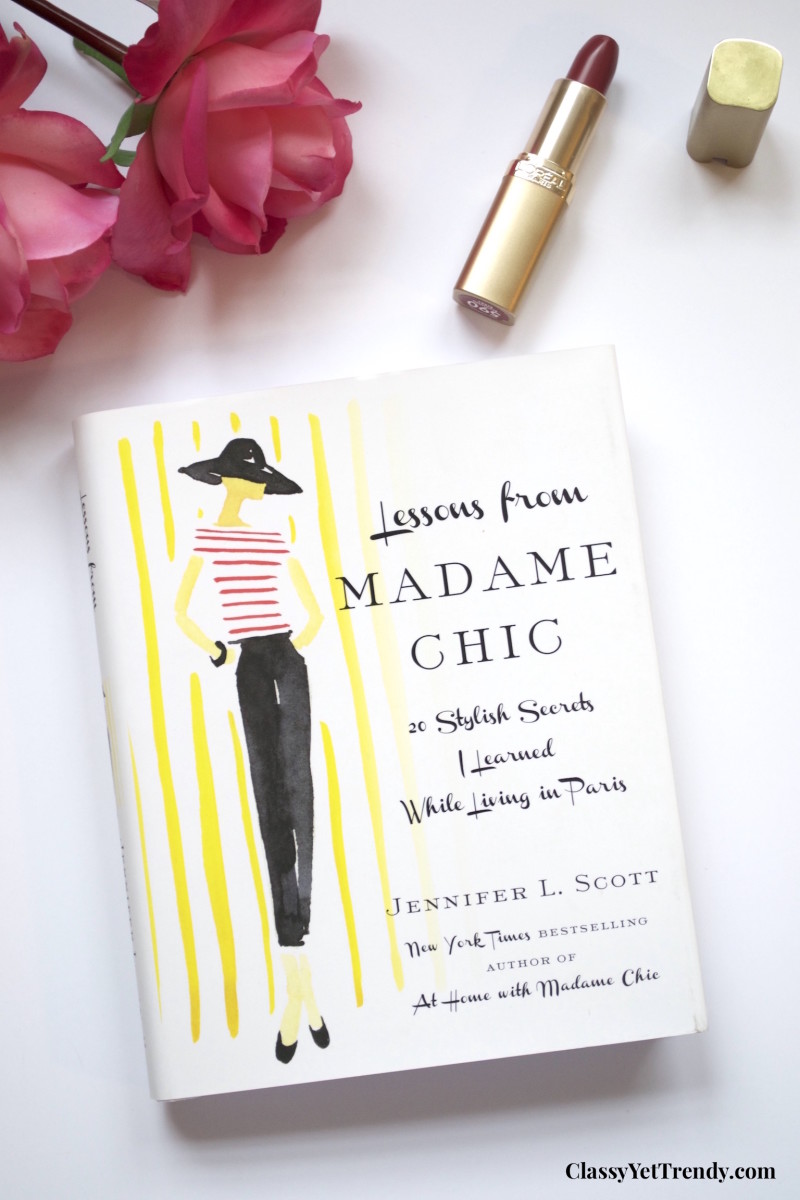 Lessons from
MADAME
CHIC
20 Stylish Secrets
I Learned
While Living in Paris
JENNIFER L. SCOTT
New York Times BESTSELLING
AUTHOR OF
At Home with Madame Chic
Lessons from
ClassyYetTrendy.com